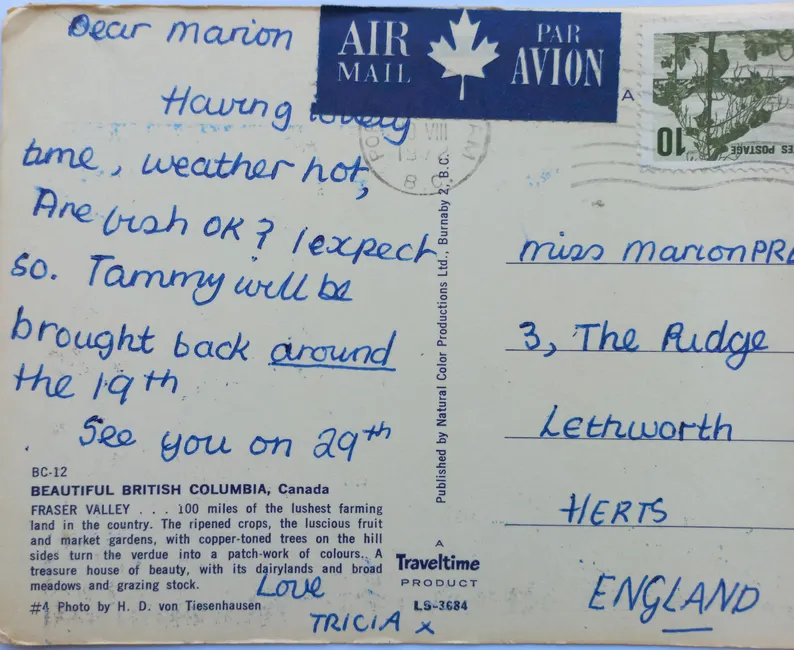 Dear Marion
Having lovely
time, weather hot,
Are fish OK? I expect
so. Tammy will be
brought back around
the 19th
See you on 29th
Love
TRICIA x
BC-12
BEAUTIFUL BRITISH COLUMBIA, Canada
FRASER VALLEY . . . 100 miles of the lushest farming
land in the country. The ripened crops, the luscious fruit
and market gardens, with copper-toned trees on the hill
sides turn the verdue into a patch-work of colours. A
treasure house of beauty, with its dairylands and broad
meadows and grazing stock.
#4 Photo by H. D. von Tiesenhausen
Published by Natural Color Productions Ltd., Burnaby 2, B.C.
A
Traveltime
PRODUCT
LS-3684
AIR MAIL
PAR AVION
A
VIII
B.C.
AM
10
ES POSTAGE
Miss Marion PRE
3, The Ridge
Lethworth
HERTS
ENGLAND